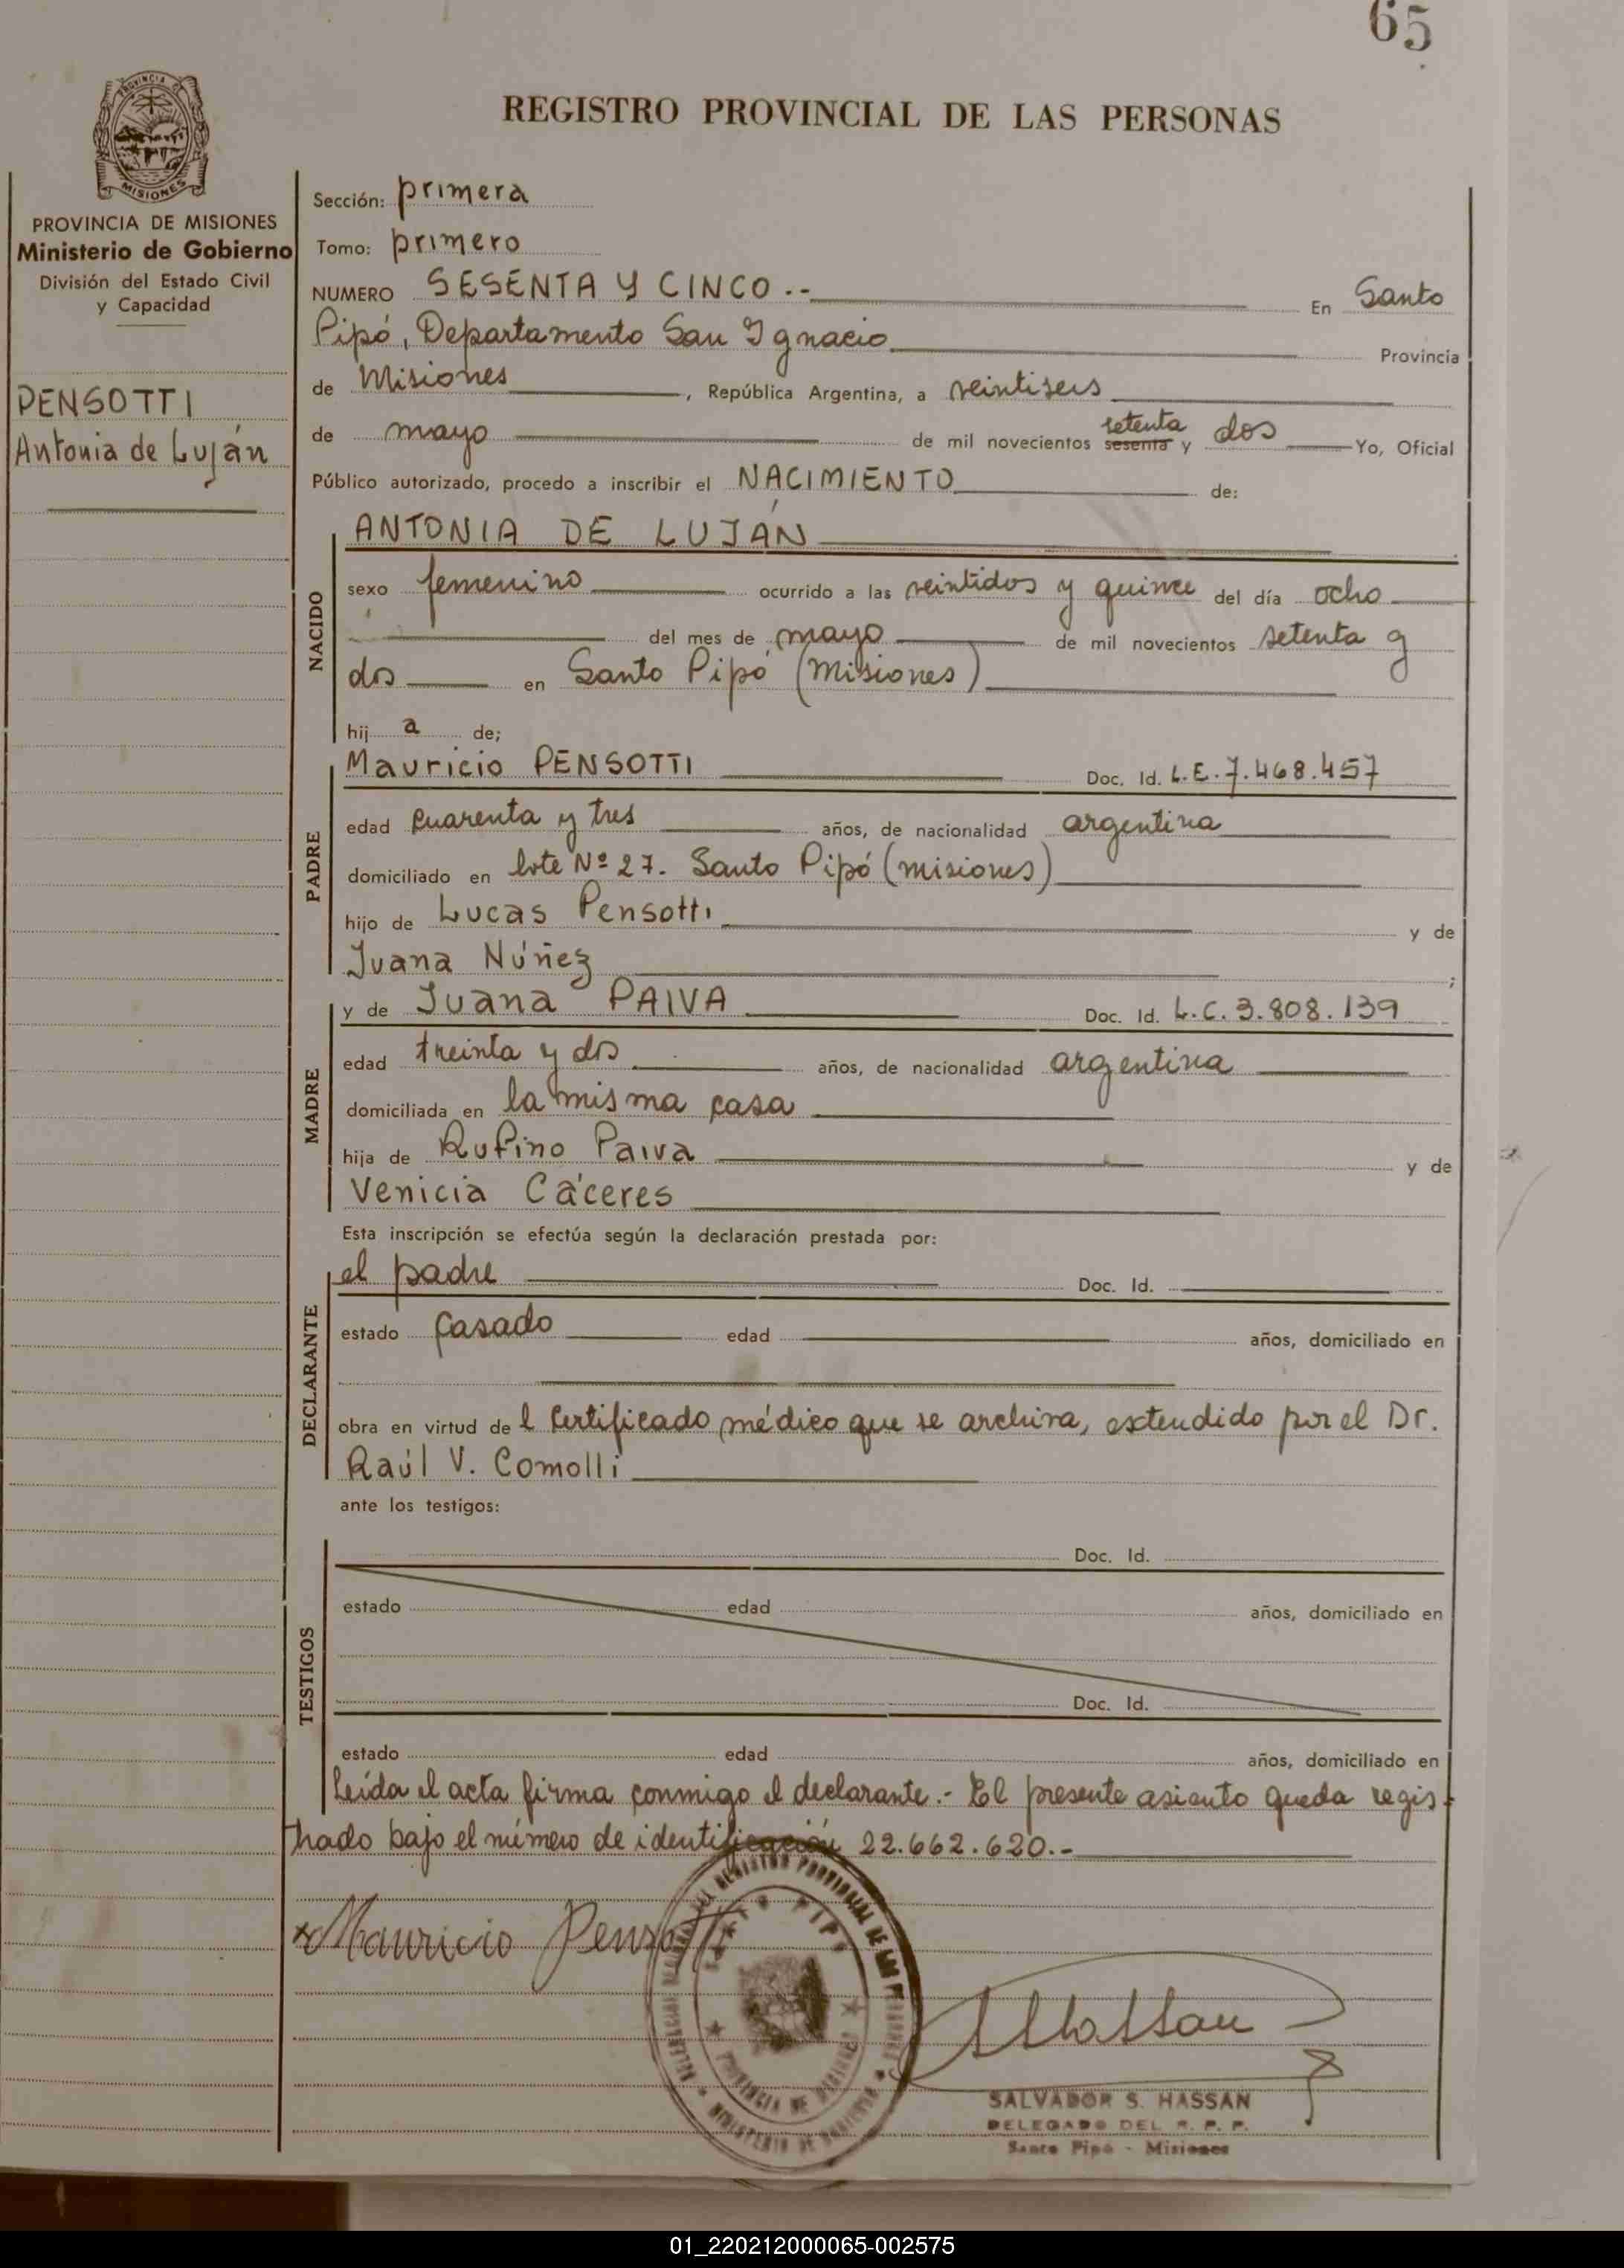 65
REGISTRO PROVINCIAL DE LAS PERSONAS
PROVINCIA
MISIONES
PROVINCIA DE MISIONES
Ministerio de Gobierno
División del Estado Civil
y Capacidad
PENSOTTI
Antonia de Luján
Sección: primera
Tomo: primero
NUMERO SESENTA Y CINCO.-- En Santo
Pipó, Departamento San Ignacio Provincia
de Misiones, República Argentina, a veintiseis
de mayo de mil novecientos sesenta setenta y dos Yo, Oficial
Público autorizado, procedo a inscribir el NACIMIENTO de:
NACIDO
ANTONIA DE LUJÁN
sexo femenino ocurrido a las veintidos y quince del día ocho
del mes de mayo de mil novecientos setenta y
dos en Santo Pipó (Misiones)
hij a de;
PADRE
Mauricio PENSOTTI Doc. Id. L.E. 7.468.457
edad cuarenta y tres años, de nacionalidad argentina
domiciliado en lote Nº 27. Santo Pipó (misiones)
hijo de Lucas Pensotti y de
Juana Núñez ;
MADRE
y de Juana PAIVA Doc. Id. L.C. 3.808.139
edad treinta y dos años, de nacionalidad argentina
domiciliada en la misma casa
hija de Rufino Paiva y de
Venicia Cáceres
Esta inscripción se efectúa según la declaración prestada por:
DECLARANTE
el padre Doc. Id.
estado casado edad años, domiciliado en
obra en virtud de l certificado médico que se archiva, extendido por el Dr.
Raúl V. Comolli
ante los testigos:
TESTIGOS
Doc. Id.
estado edad años, domiciliado en
Doc. Id.
estado edad años, domiciliado en
Leída el acta firma conmigo el declarante.- El presente asiento queda regis-
trado bajo el número de identificación 22.662.620.-
Mauricio Pensotti
SANTO PIPO
PROVINCIA DE MISIONES
MINISTERIO DE GOBIERNO
SALVADOR S. HASSAN
DELEGADO DEL R. P. P.
Santo Pipó - Misiones
01_220212000065-002575